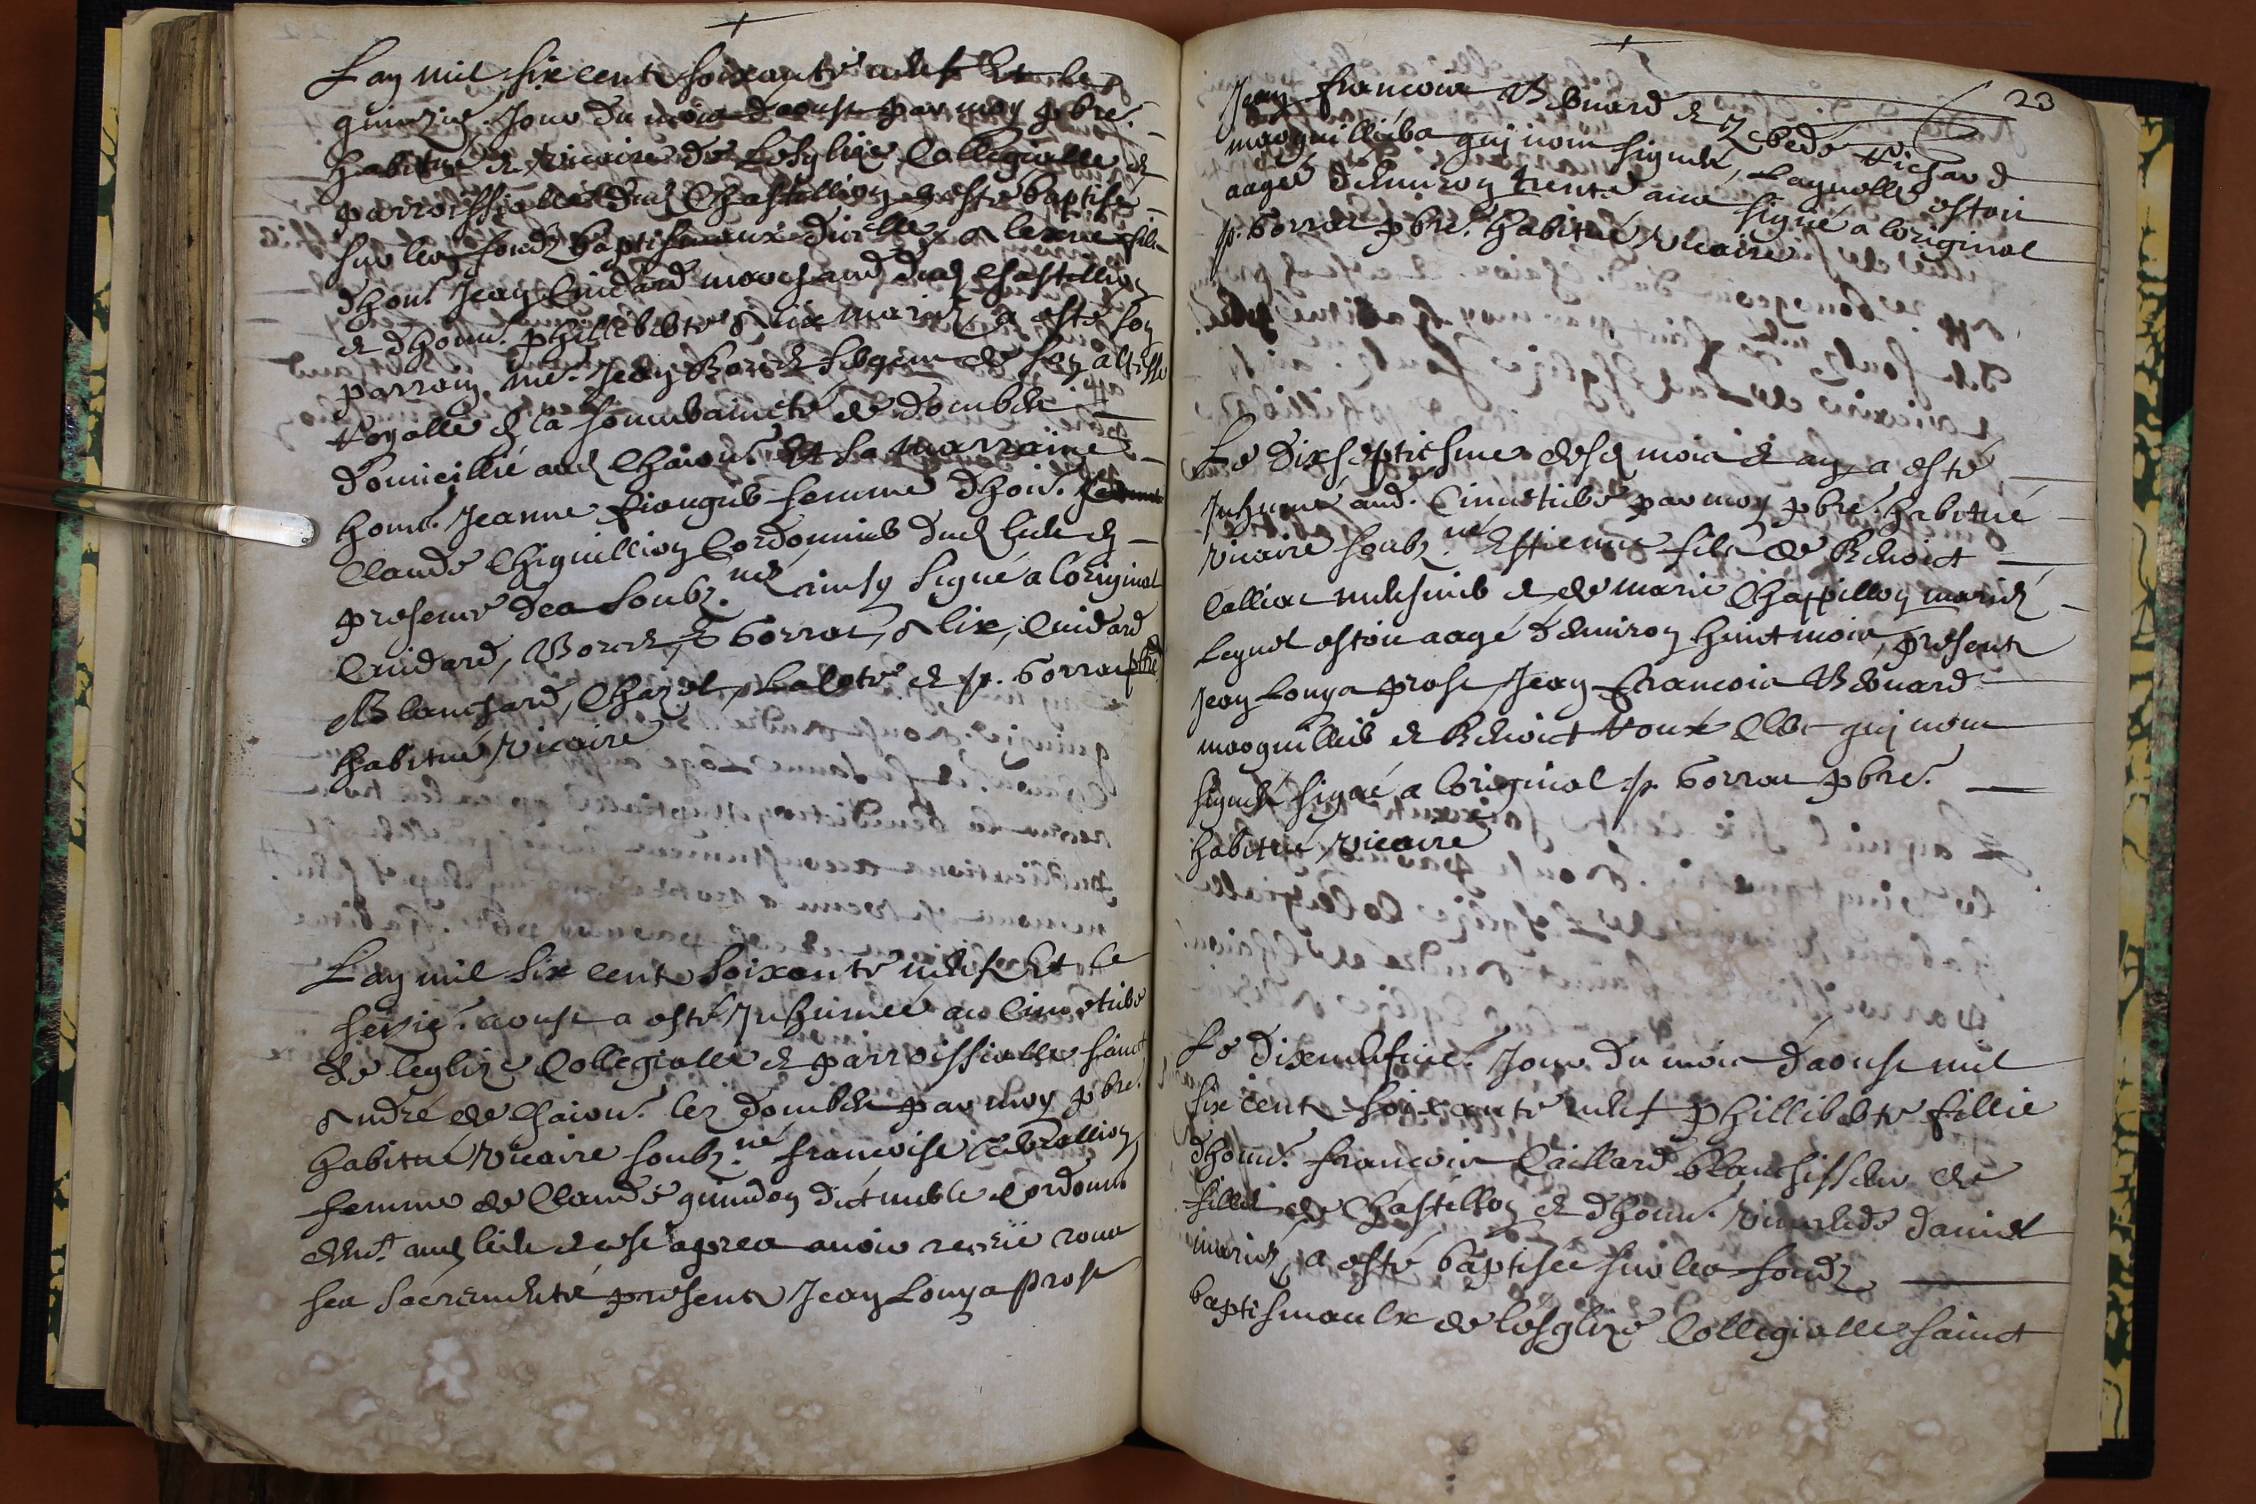 Lan mil six cents soixante neuf Et le
quinzie. Jour du mois daoust par moy pbre.
habitué & vicaire de Lesglize Collegialle &
parroissialle dud Chastillion a esté baptisé
sur les fondz baptismaux dicelle Alexix filz
dhon. Jean Cuidard marchand dud Chastillion
& dhonn. philleberte Alix mariez, a esté son
parrain me. Jean
Royalle en la souveraineté de dombes
domicillié aud Chaion. Et la marraine
honn. Jeanne femme dhon.
Claude Chiquillion Cordonnier dud lieu en
presence des soubz.nez ainsy signé a loriginal
Cuidard, Borrat, Alix, Cuidard
Blanchard, Chazel, & p. Borrat pbre
habitué vicaire
Lan mil six cents soixante neuf Et le
sezie. aoust a esté Inhumée au Cimetiere
de leglize Collegialle & parroissialle sainct
André de Chaion. lez dombes par moy pbre.
habitué vicaire soubz.né francoise
femme de Claude quindon dict Cordonn
aud lieu apres avoir receu tous
ses sacrements presents Jean Louys prost
23
Jean francois Bevuard & Richard
marguilliers qui nont signés, Laquelle estoit
aagée denviron trente ans signé a loriginal
p. Borrat pbre. habitué vicaire
Le dixseptiesme desd mois & an, a esté
Inhumé aud. Cimetiere par moy pbre. habitué
vicaire soubz.né Estienne filz de Benoict
Callias & de marie Chappillon mariez
Lequel estoit aagé denviron huict mois, presents
Jean Louys prost, Jean francois Bevuard
marguillier & Benoict Roux Clerc qui nont
signés signé a loriginal p. Borrat pbre.
habitué vicaire
Le dixneufvie. Jour du mois daoust mil
six cents soixante neuf philliberte fillie
dhonn. francois Caillard blanchisseur de
fillet de Chastillon & dhonn. daniel
mariez, a esté baptisée sur les fondz
baptismaulx de lesglize Collegialle sainct